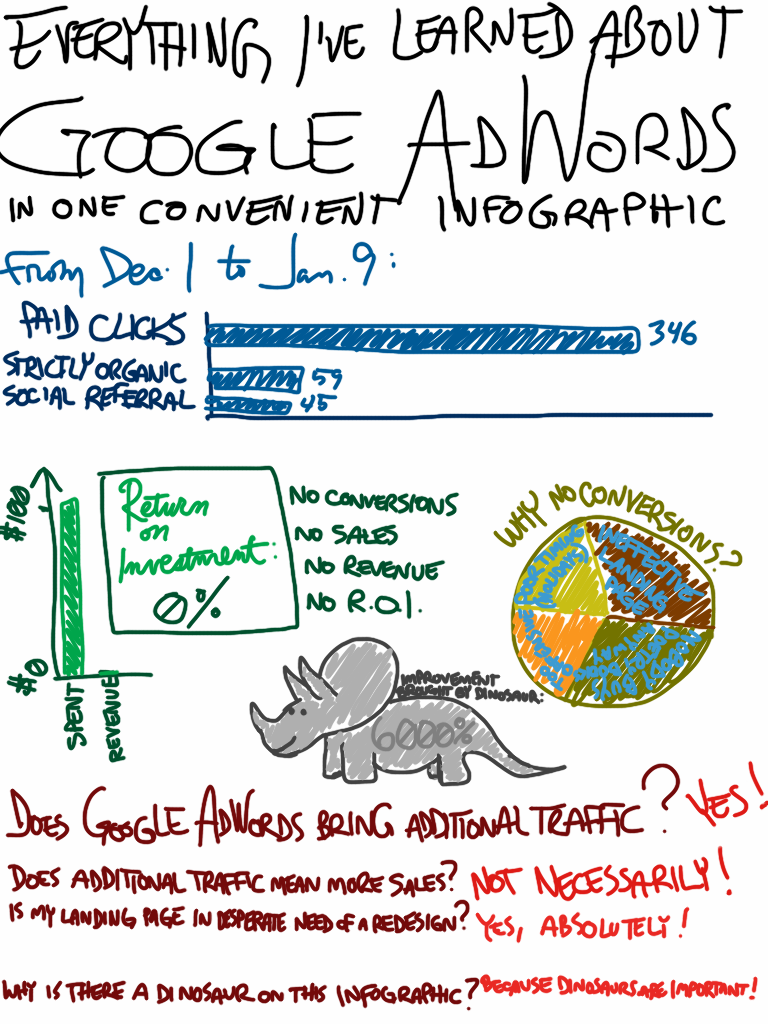 EVERYTHING I'VE LEARNED ABOUT
GOOGLE ADWORDS
IN ONE CONVENIENT INFOGRAPHIC
From Dec. 1 to Jan. 9:
PAID CLICKS
346
STRICTLY ORGANIC
59
SOCIAL REFERRAL
45
$100
$0
SPENT
REVENUE
Return
on
Investment:
0%
NO CONVERSIONS
NO SALES
NO REVENUE
NO R.O.I.
WHY NO CONVERSIONS?
POOR TIMING
(HOLIDAYS)
INEFFECTIVE
LANDING
PAGE
TOO EXPENSIVE
NOBODY BUYS
PHOTO BOOKS
ANYWAY
IMPROVEMENT
BROUGHT BY DINOSAUR:
6000%
DOES GOOGLE ADWORDS BRING ADDITIONAL TRAFFIC? YES!
DOES ADDITIONAL TRAFFIC MEAN MORE SALES? NOT NECESSARILY!
IS MY LANDING PAGE IN DESPERATE NEED OF A REDESIGN? YES, ABSOLUTELY!
WHY IS THERE A DINOSAUR ON THIS INFOGRAPHIC? BECAUSE DINOSAURS ARE IMPORTANT!